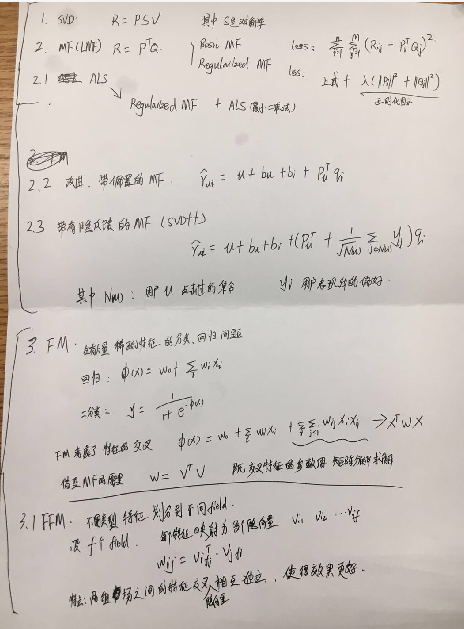 1. SVD R = PSV 其中 S是对角阵
2. MF(LMF) R = PᵀQ. Basic MF loss: ΣΣ (Rij - PiᵀQj)².
Regularized MF loss. 上式 + λ(||Pi||² + ||Qj||²)
正则化因子
2.1 ALS
Regularized MF + ALS (最小二乘法)
2.2 改进. 带偏置的 MF. r̂ui = u + bu + bi + Puᵀqi
2.3 带有隐反馈的 MF (SVD++)
r̂ui = u + bu + bi + (Puᵀ + 1/√N(u) Σ j∈N(u) yj) qi
其中 N(u): 用户 u 点击过的集合 yj 用户表现的偏好.
3. FM. 稀疏特征 的分类、回归问题
回归: φ(x) = w0 + Σ wi xi
二分类: y = 1/(1+e^-φ(x))
FM 考虑了 特征的交叉 φ(x) = w0 + Σ wi xi + ΣΣ wij xi xj → xᵀWX
借鉴MF的原理 W = VᵀV 既交叉特征的参数用 矩阵分解求解
3.1 FFM. 不同类型 特征. 划分到不同 field.
设 f 个 field. 每个特征 映射为 f个隐向量 vi1 vi2 ... vif
wij = vi fjᵀ · vj fi
特点: 两组 场之间的特征交叉 相互独立, 使得效果更好.
隐向量